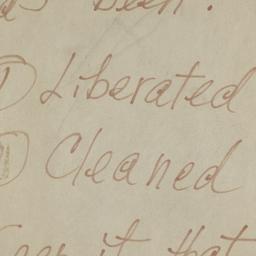 been.
1 Liberated
Cleaned
it that